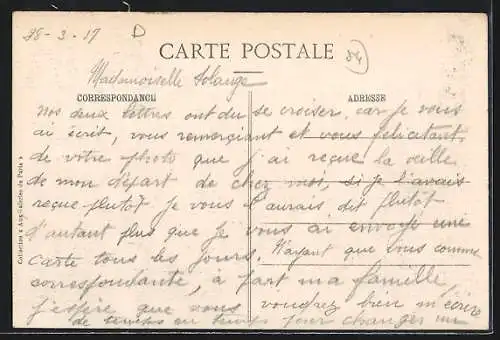 28-3-17 D
CARTE POSTALE
54
Mademoiselle Solange
CORRESPONDANCE
ADRESSE
Nos deux lettres ont du se croiser, car je vous
ai écrit, vous remerçiant et vous félicitant
de votre photo que j'ai reçue la veille
de mon départ de chez moi, si je l'avais
reçue plutôt je vous l'aurais dit plutôt
d'autant plus que je vous ai envoyé une
carte tous les jours. N'ayant que vous comme
correspondante, à part ma famelle
j'espère que vous voudrez bien m'écrire
de temps en temps pour changer un